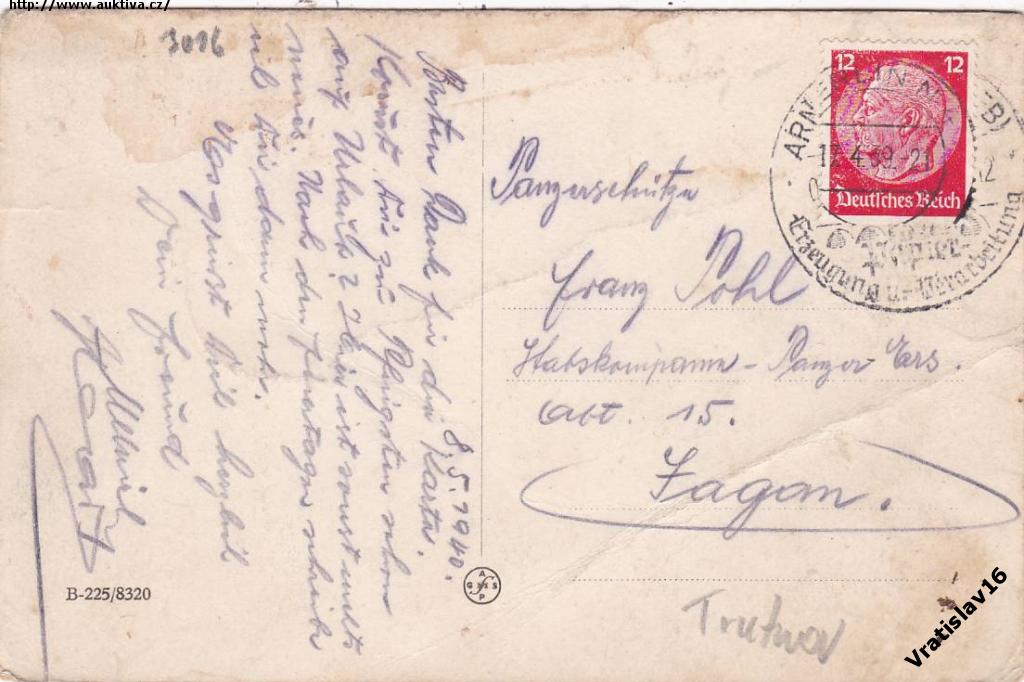 http://www.auktiva.cz/
3016
8.5.1940.
Besten Dank für die Karte.
Kommst Du zu Pfingsten schon
auf Urlaub? Hier ist sonst nichts
neues. Nach den Feiertagen schreibe
ich Dir dann mehr.
Es grüsst Dich herzlich
Dein Freund
B-225/8320
12 12
Deutsches Reich
ARN
(ELBE)
12.4.39.-21
Papier-
Erzeugung u. Verarbeitung
Panzerschütze
Franz Pohl
Stabskompanie - Panzer Ers.
Abt. 15.
Sagan.
Trutnov
Vratislav16